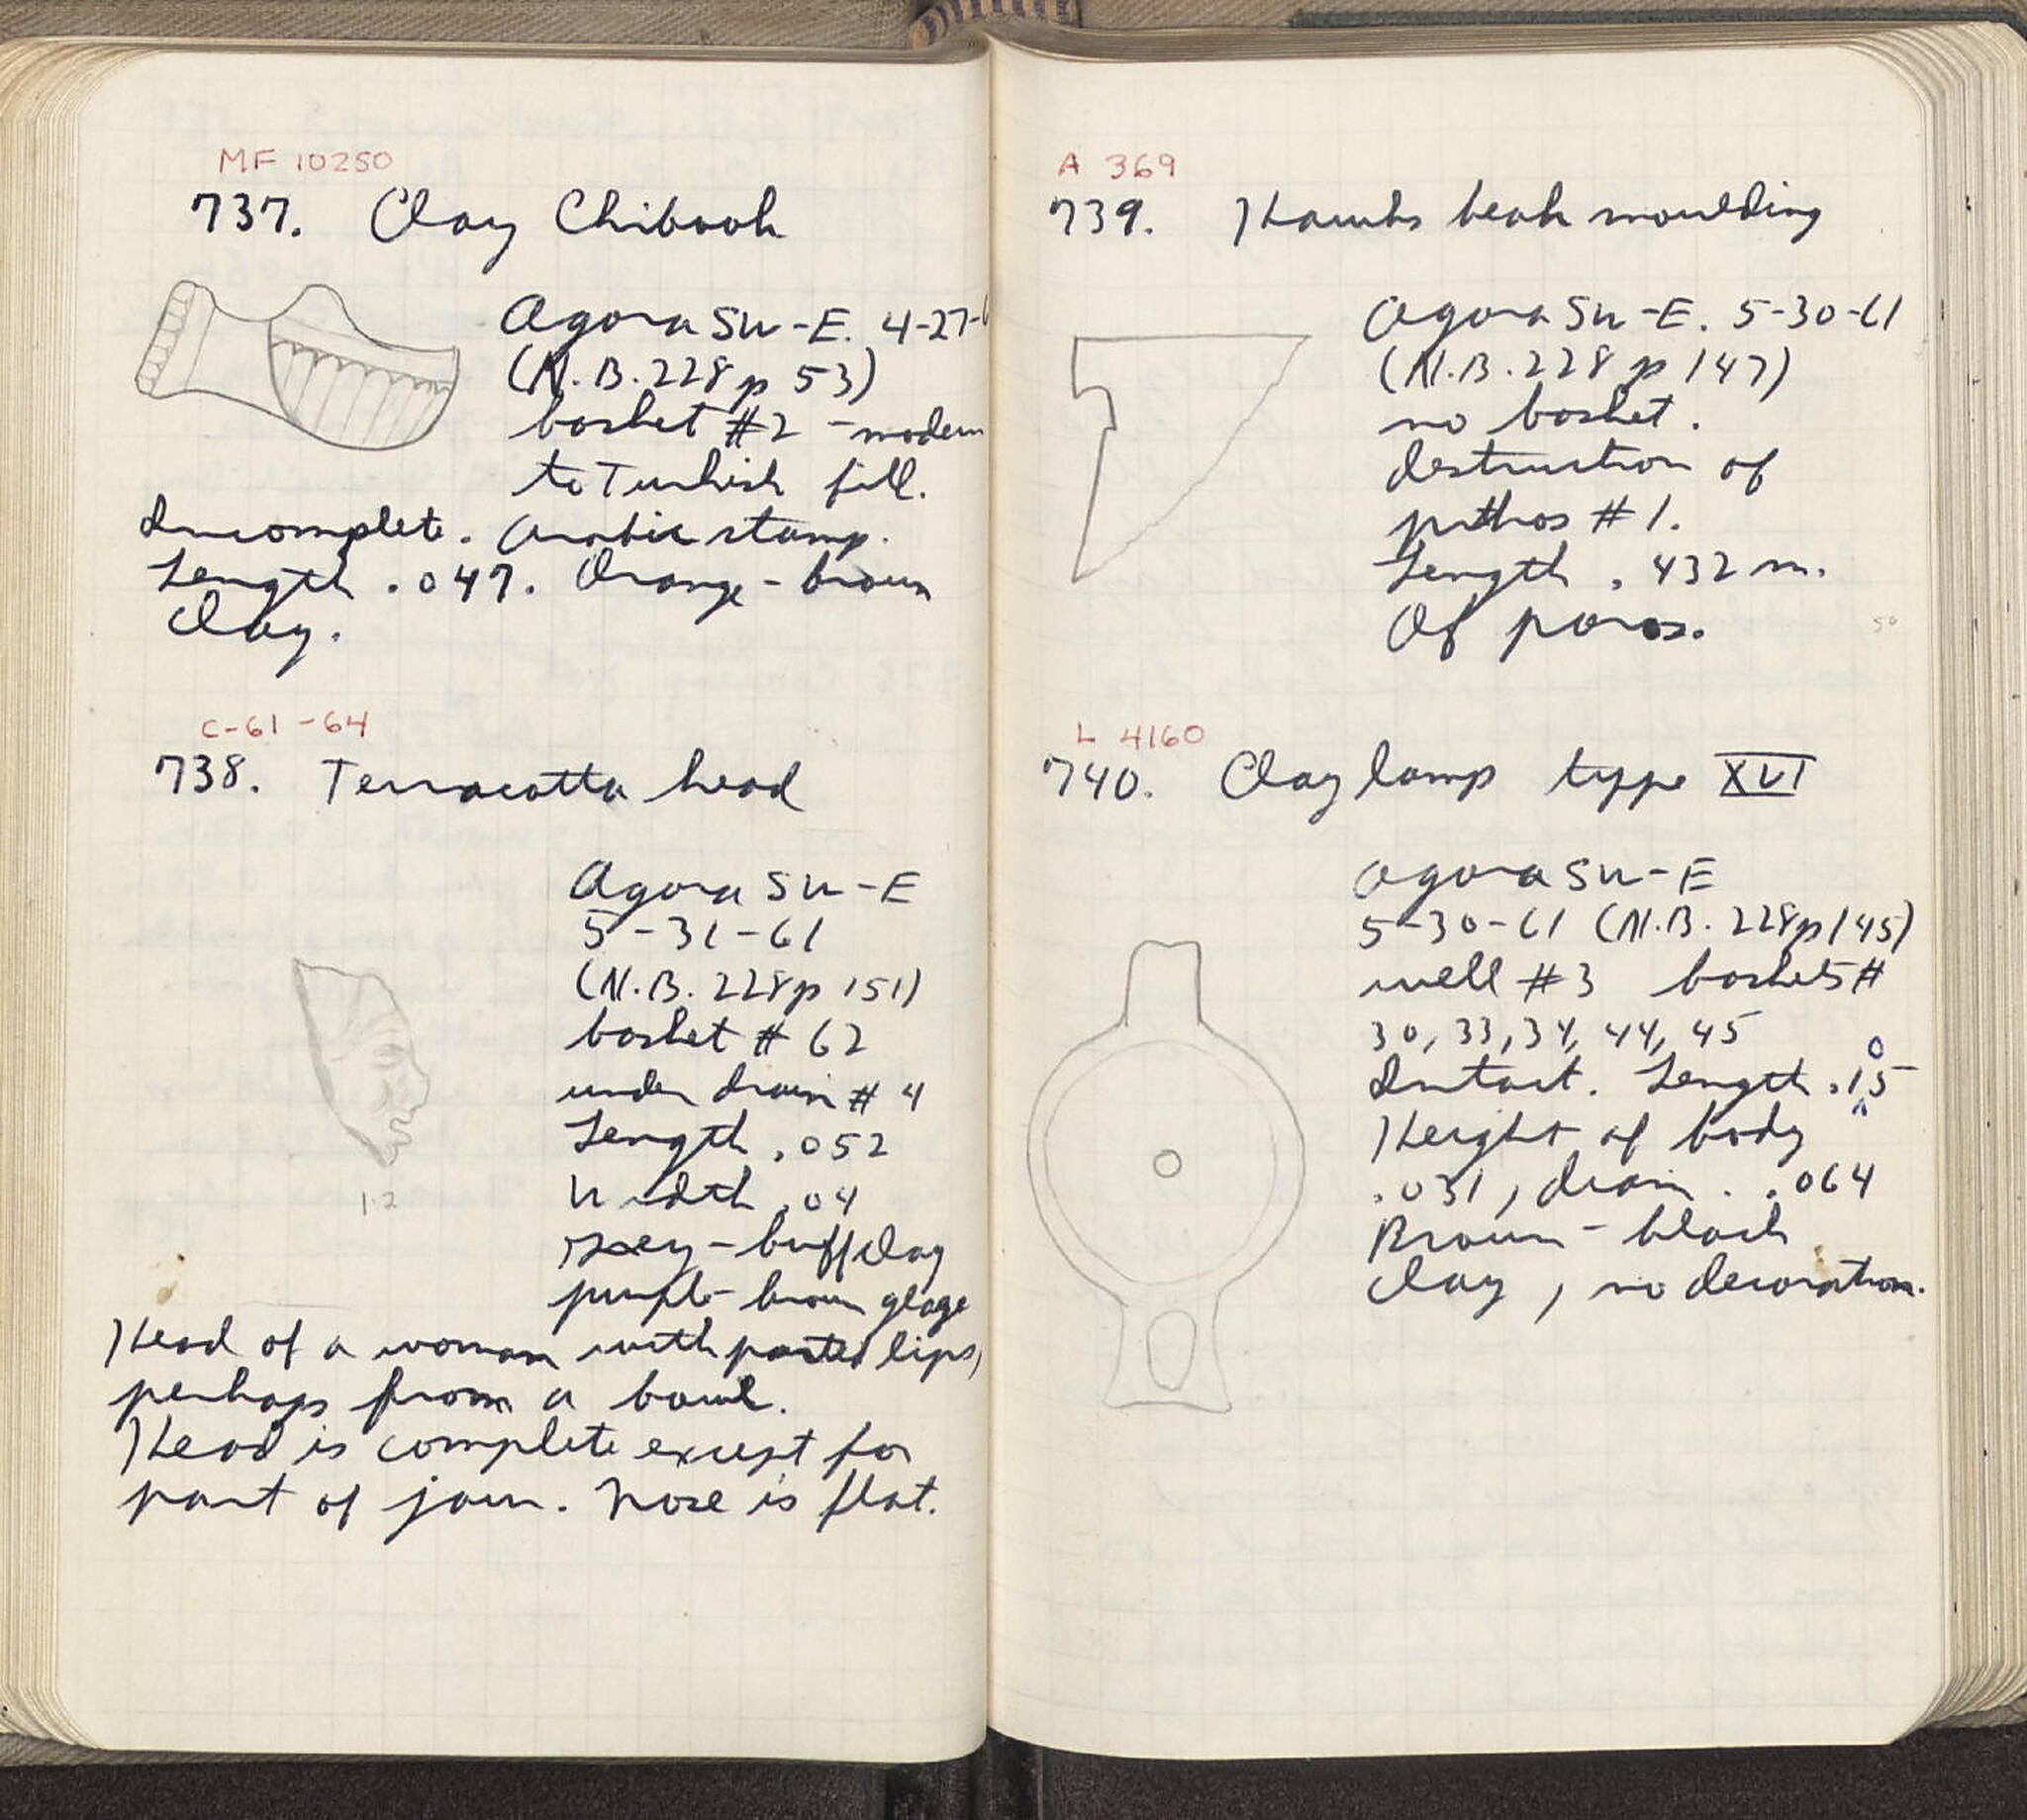 MF 10250
737. Clay Chibook
Agora SW-E. 4-27-6
(N.B. 228 p 53)
basket #2 - modern
to Turkish fill.
Incomplete. Arabic stamp.
Length .047. Orange-brown
clay.
C-61-64
738. Terracotta head
Agora SW-E
5-31-61
(N.B. 228 p 151)
basket # 62
under drain # 4
Length .052
Width .04
grey-buff clay
purple-brown glaze
1.2
Head of a woman with parted lips,
perhaps from a bowl.
Head is complete except for
part of jaw. Nose is flat.
A 369
739. Hawks beak moulding
Agora SW-E. 5-30-61
(N.B. 228 p 147)
no basket.
destruction of
pithos #1.
Length .432 m.
Of poros.
50
L 4160
740. Clay lamp type XVI
Agora SW-E
5-30-61 (N.B. 228 p 145)
well #3 baskets #
30, 33, 34, 44, 45
Intact. Length .105
Height of body
.031, diam. .064
Brown-black
clay, no decoration.